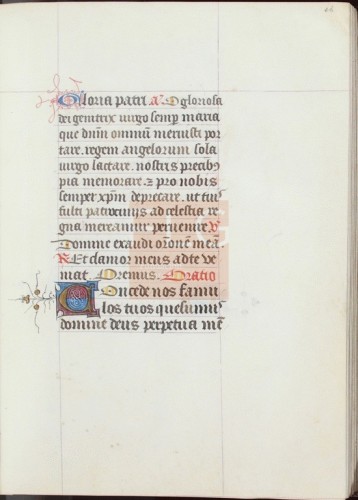 Gloria patri. A. O gloriosa
dei genitrix virgo semp maria
que dnm omniū meruisti por
tare. regem angelorum sola
virgo lactare. nostris precibꝰ
pia memorare. ⁊ pro nobis
semper xp̄m deprecare. ut tuis
fulti patrociniis ad celestia re
gna mereamur peruenire. V
Domine exaudi oronē meā
R Et clamor meus ad te ve
niat. Oremus. Oratio
Concede nos famu
los tuos quesumus
domine deus perpetua mē